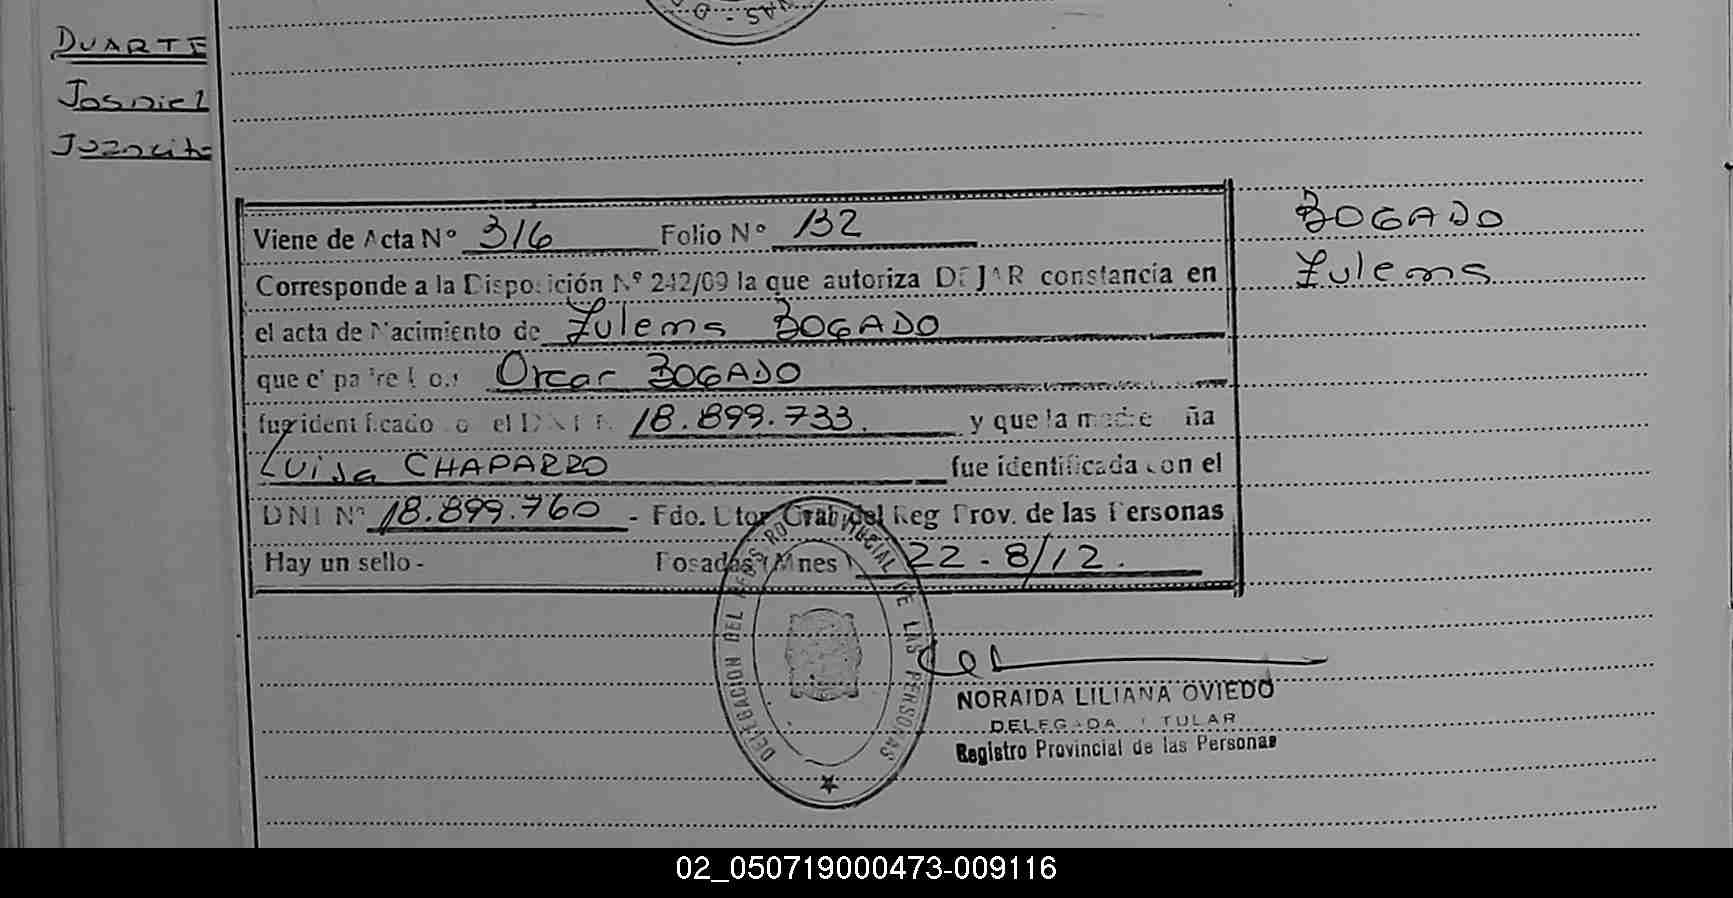 DUARTE
Josniel
Juancito
Viene de Acta Nº 316 Folio Nº 132
Corresponde a la Disposición Nº 242/09 la que autoriza DEJAR constancia en
el acta de Nacimiento de Zulema BOGADO
que el padre Don Oscar BOGADO
fue identificado con el DNI Nº 18.899.733. y que la madre Doña
Luisa CHAPARRO fue identificada con el
DNI Nº 18.899.760 - Fdo. Dtor Gral del Reg Prov. de las Personas
Hay un sello - Posadas (Mnes) 22-8/12.
BOGADO
Zulema
DELEGACION DEL REGISTRO PROVINCIAL DE LAS PERSONAS
NORAIDA LILIANA OVIEDO
DELEGADA TITULAR
Registro Provincial de las Personas
02_050719000473-009116